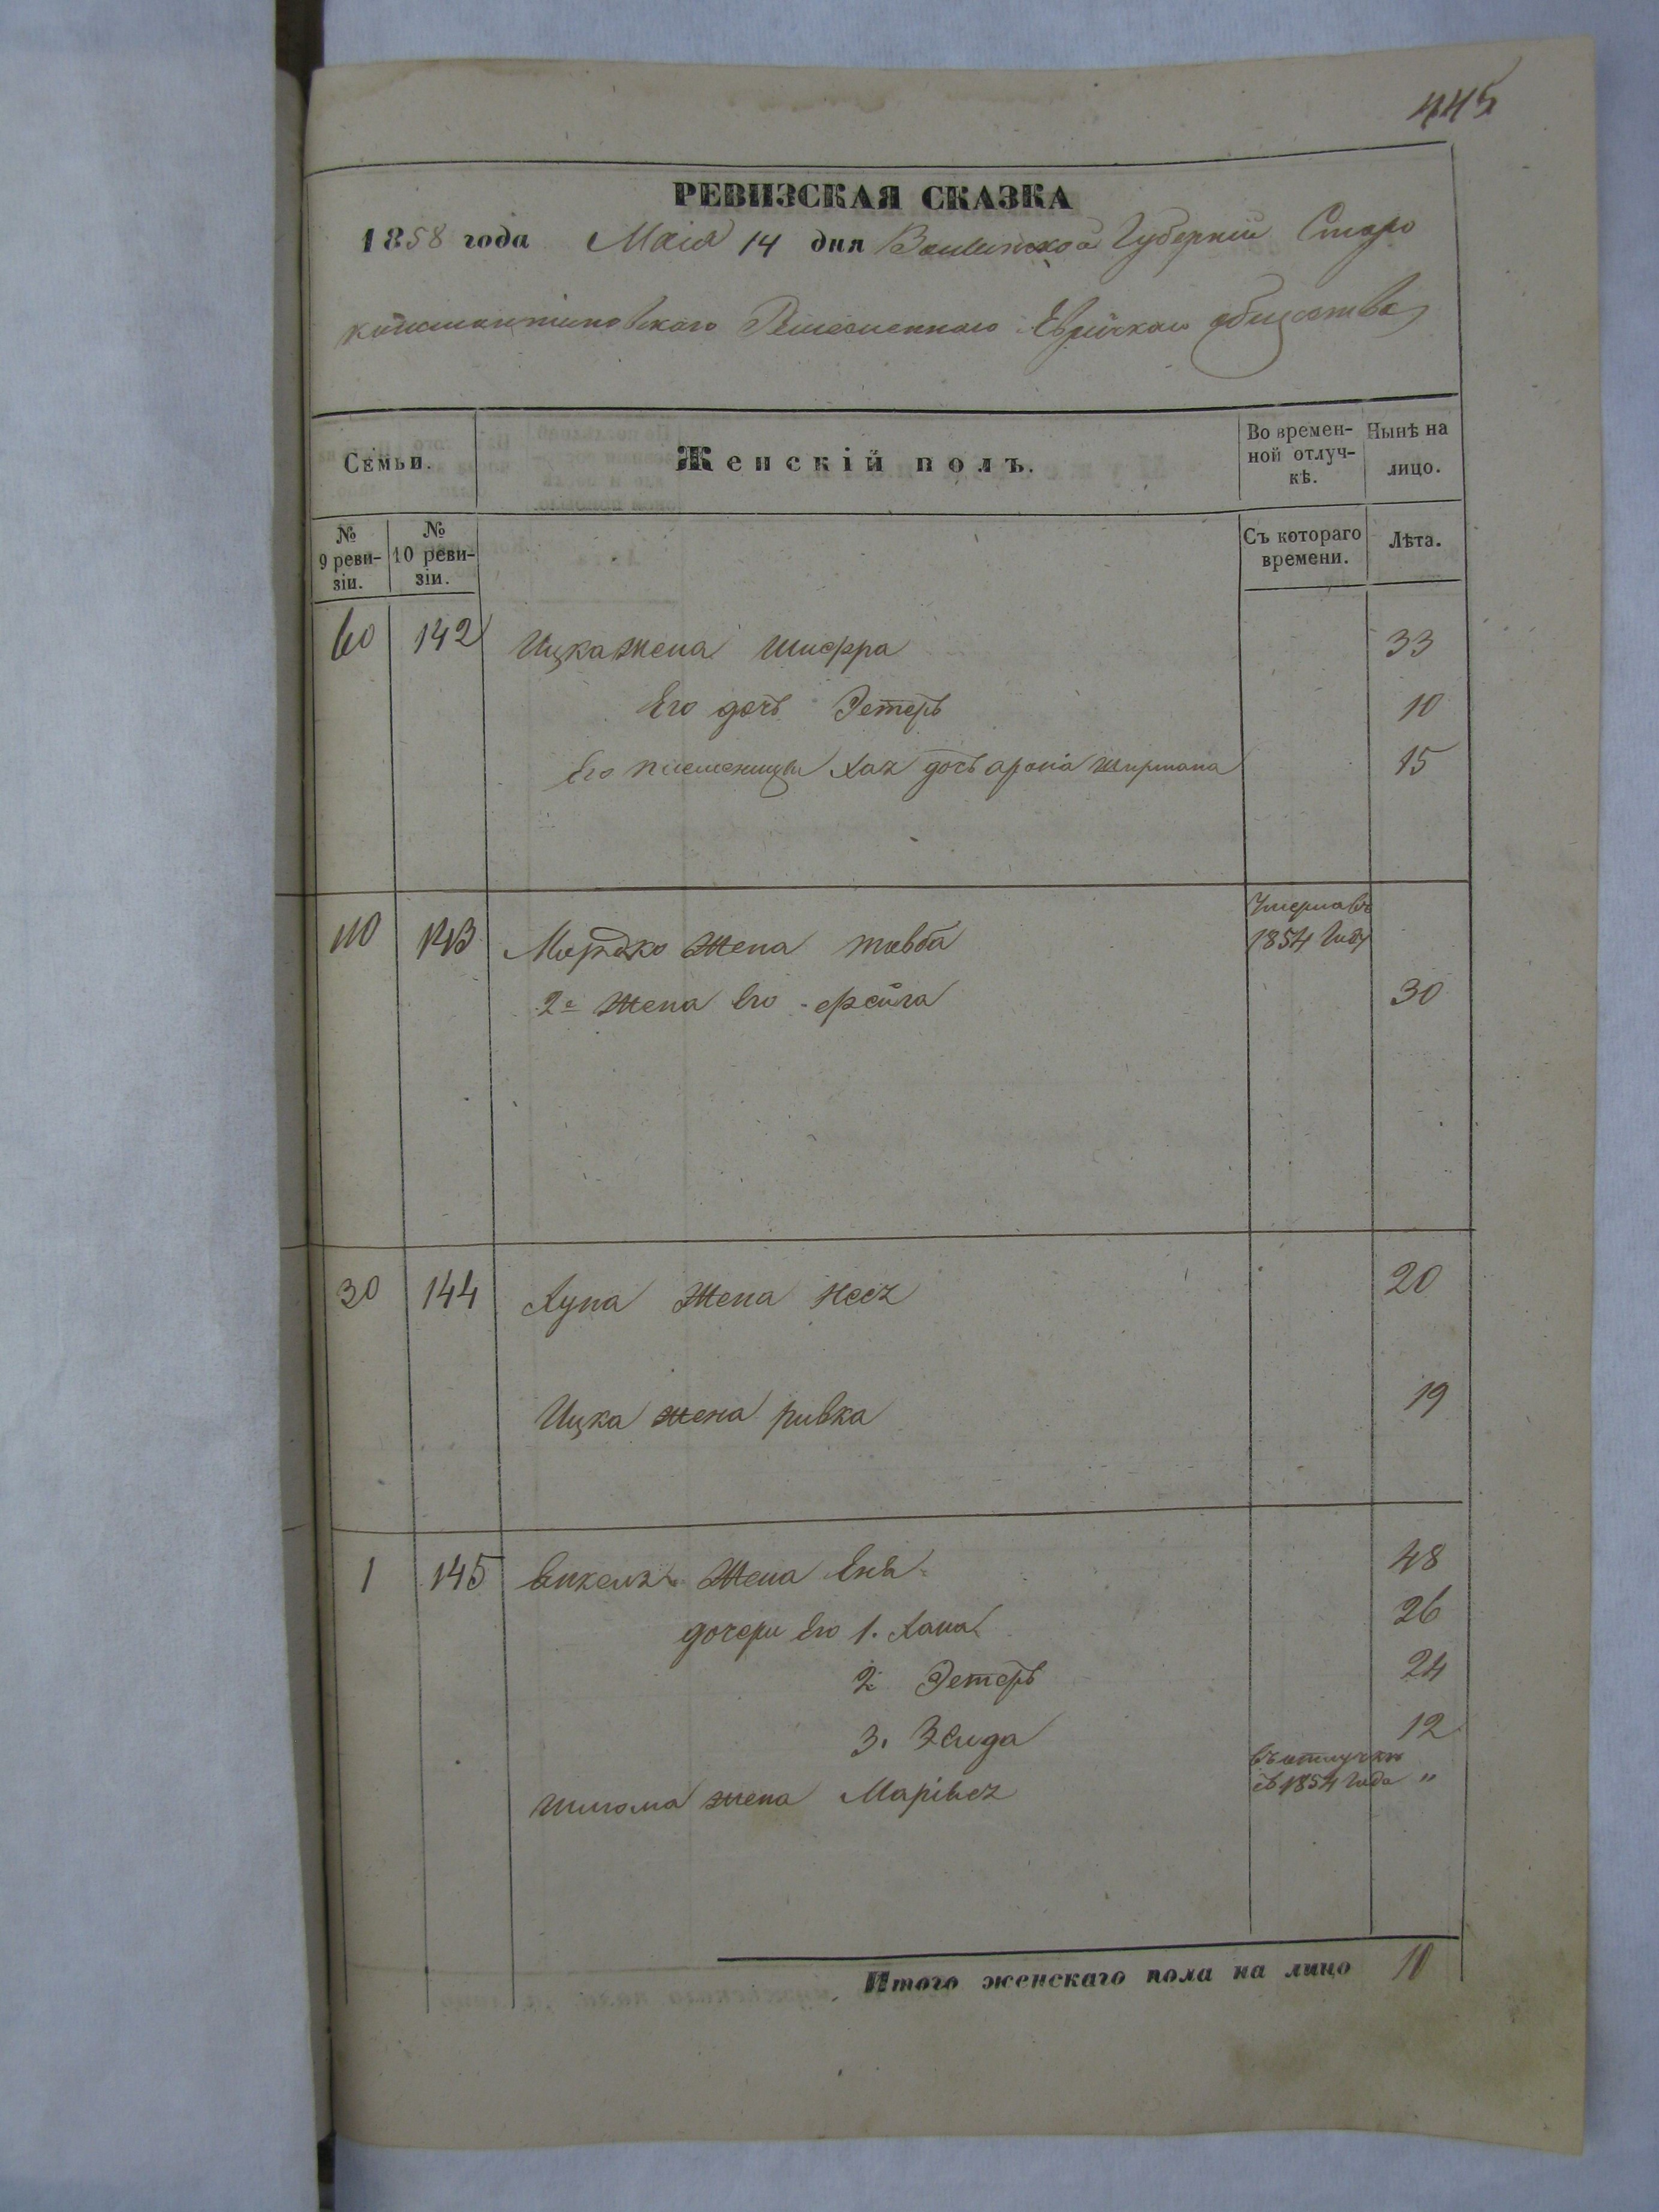 445
РЕВИЗСКАЯ СКАЗКА
1858 года Маія 14 дня Волынской Губерніи Старо
константиновского Ремесленнаго Еврейскаго общества
Семьи.
Женскій полъ.
Во времен-
ной отлуч-
кѣ.
Нынѣ на
лицо.
№
9 реви-
зіи.
№
10 реви-
зіи.
Съ котораго
времени.
Лѣта.
60 142 Ицка жена Шифра 33
Его дочь Эстеръ 10
Его племеница Хая дочь арона 15
Умерла въ
110 143 Мордко жена товба 1854 Году
2я жена Его фейга 30
30 144 жена Неся 20
Ицка жена ривка 19
1 145 жена Еня 48
дочери Его 1. Хана 26
2. Эстеръ 24
3. Зелда 12
въ отлучкѣ
жена Маріяся съ 1854 Года "
Итого женскаго пола на лицо 10